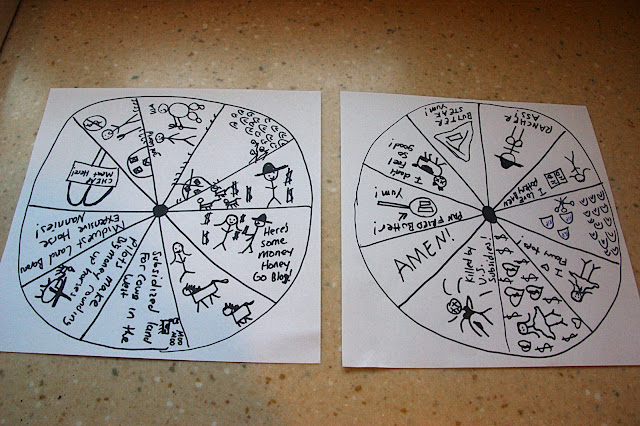 CHEAP
Meat Here!
Here's
some
money
Honey
Go Blog!
Subsidized land
For Cows in the
West
MOO
MOO
Pilots make
Big money rounding
up horses
Midwest Land
Expensive Horse
Nannies!
BUTTER
STEAK
Yum!
RANCHER
ASS
I don't
feel
good!
Yum!
PAN FRIED Butter!
AMEN!
Killed by
U.S.
Subsidies!